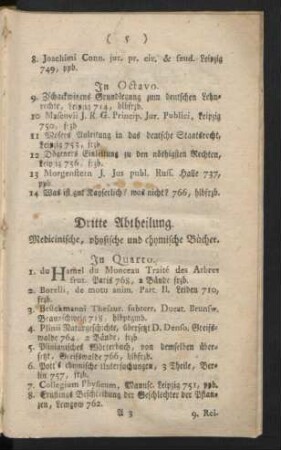 ( 5 )
8. Joachimi Conn. jur. pr. civ. & feud. Leipzig
749, ppb.
In Octavo.
9. Zschackwitzens Grundlegung zum deutschen Lehn-
rechte, Leipzig 714, hlbfrzb.
10 Mascovii J. R. G. Princip. Jur. Publici, Leipzig
750, frzb
11 Mosers Anleitung in das deutsche Staatsrecht,
Leipzig 753, frzb.
12 Einleitung zu den nöthigsten Rechten,
Leipzig 756. frzb.
13 Morgenstern J. Jus publ. Russ. Halle 737,
ppb.
14 Was ist gut Kayserlich? was nicht? 766, hlbfrzb.
Dritte Abtheilung.
Medicinische, physische und chymische Bücher.
In Quarto.
1. du Hamel du Monceau Traité des Arbres
frut. Paris 768, 2 Bände frzb.
2. Borelli, de motu anim. Part. II. Leiden 710,
frzb.
3. Brückmanni Thesaur. subterr. Ducat. Brunsw.
Braunschweig 728, hlbprgtb.
4. Plinii Naturgeschichte, übersetzt D. Denso. Greifs-
walde 764, 2 Bände, frzb
5. Plinianisches Wörterbuch, von demselben über-
setzt, Greifswalde 766, hlbfrzb.
6. Pott's chemische Untersuchungen, 3 Theile, Ber-
lin 757, frzb
7. Collegium Physicum, Manusc. Leipzig 751, ppb.
8. Beschreibung der Geschlechter der Pflan-
zen, Lemgow 762.
A 3 9. Rei-